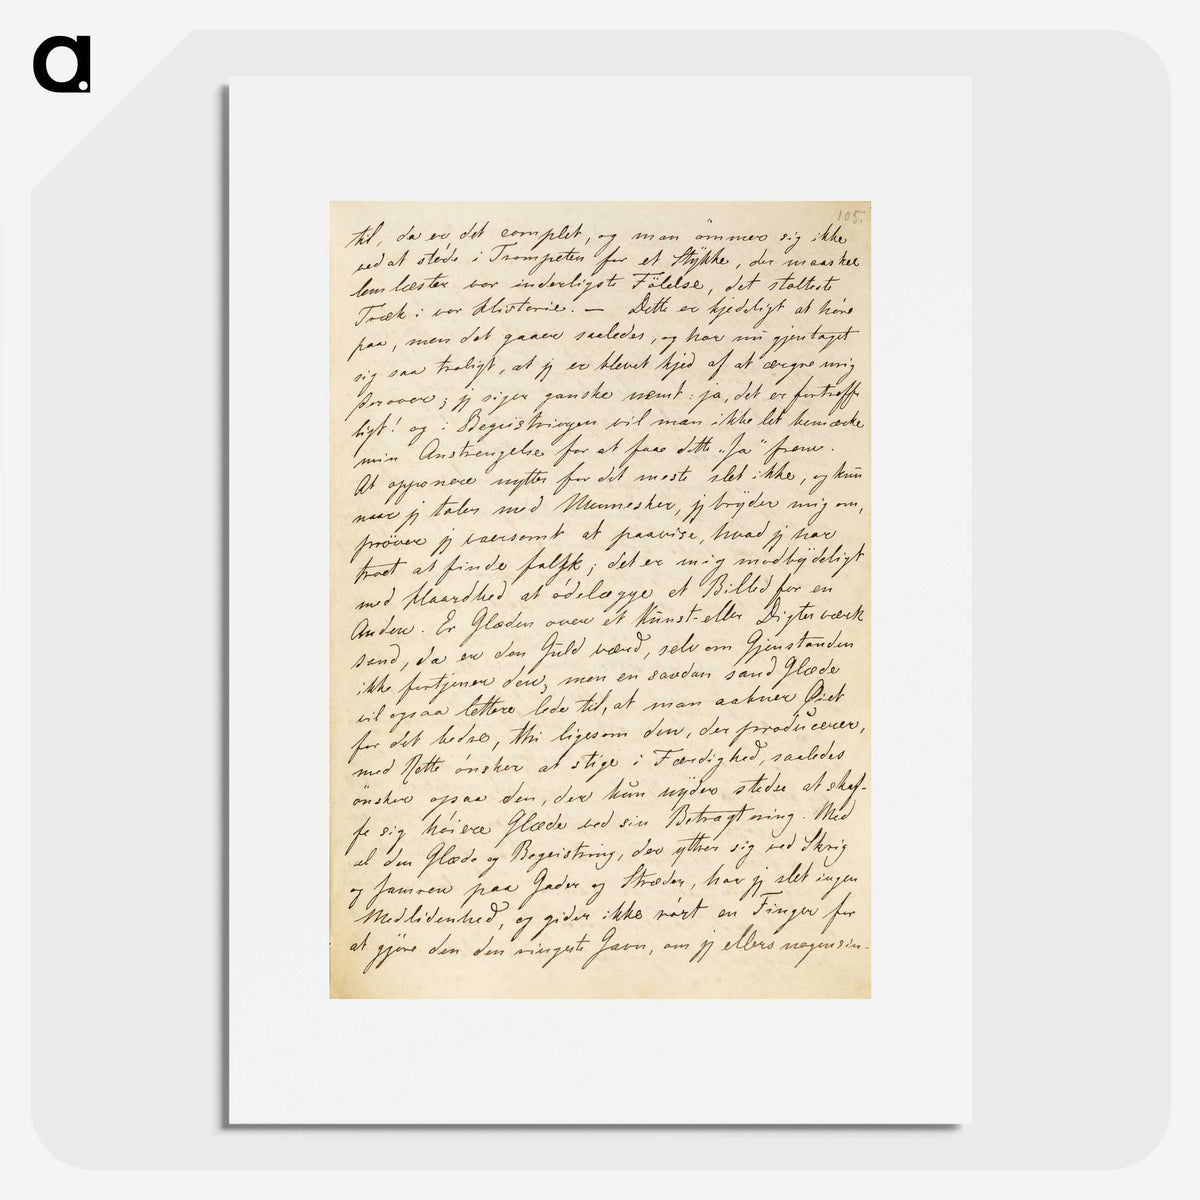 a.
105.
til, da er det complet, og man ömmer sig ikke
ved at støde i Trompeten for et Stÿkke, der maaskee
lemlæster vor inderligste Fölelse, det stolteste
Træk i vor Historie. — Dette er kjedeligt at höre
paa, men det gaaer saaledes, og har nu gjentaget
sig saa traligt, at jeg er blevet kjed af at ærgre mig
derover; jeg siger ganske nemt: ja, det er fortreff-
ligt! og i Begeistringen vil man ikke let bemærke
min Anstrengelse for at faae dette „Ja" frem.
At opponere nytter for det meste slet ikke, og kun
naar jeg taler med Mennesker, jeg brÿder mig om,
pröver jeg varsomt at paavise, hvad jeg har
troet at finde falsk; det er mig modbÿdeligt
med Haardhed at ödelægge et Billed for en
Anden. Er Glæden over et Kunst- eller Digterværk
sand, da er den Guld værd, selv om Gjenstanden
ikke fortjener den; men en saadan sand Glæde
vil ogsaa lettere lede til, at man aabner Öiet
for det bedre, thi ligesom den, der producerer,
med Rette önsker at stige i Færdighed, saaledes
önsker ogsaa den, der kun nÿder stedse at skaf-
fe sig höiere Glæde ved sin Betragtning. Med
al den Glæde og Begeistring, der yttrer sig ved Skrig
og Jamren paa Gader og Stræder, har jeg slet ingen
Medlidenhed, og gider ikke rört en Finger for
at gjöre den den ringeste Gavn, om jeg ellers nogensin-